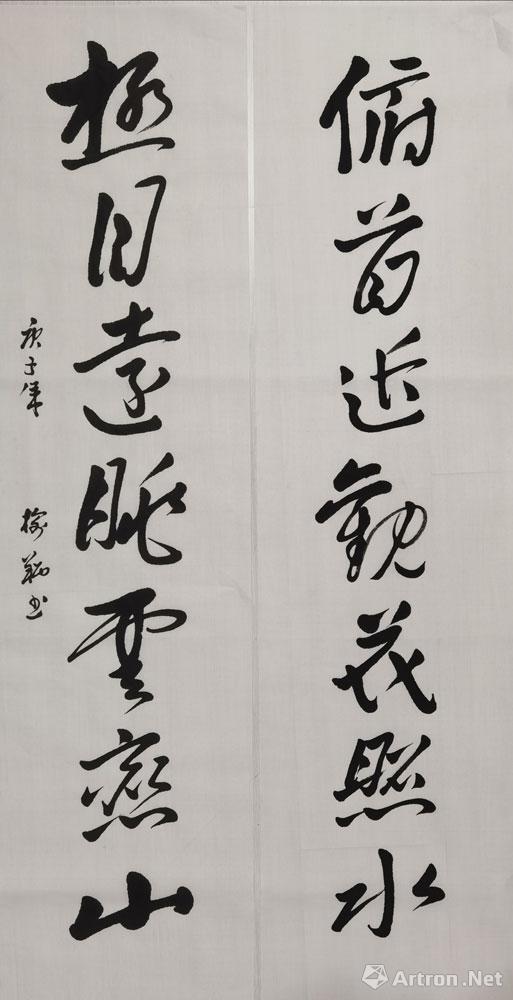 俯首近觀花照水
極目遠眺雲恋山
庚子年 書
Artron.Net